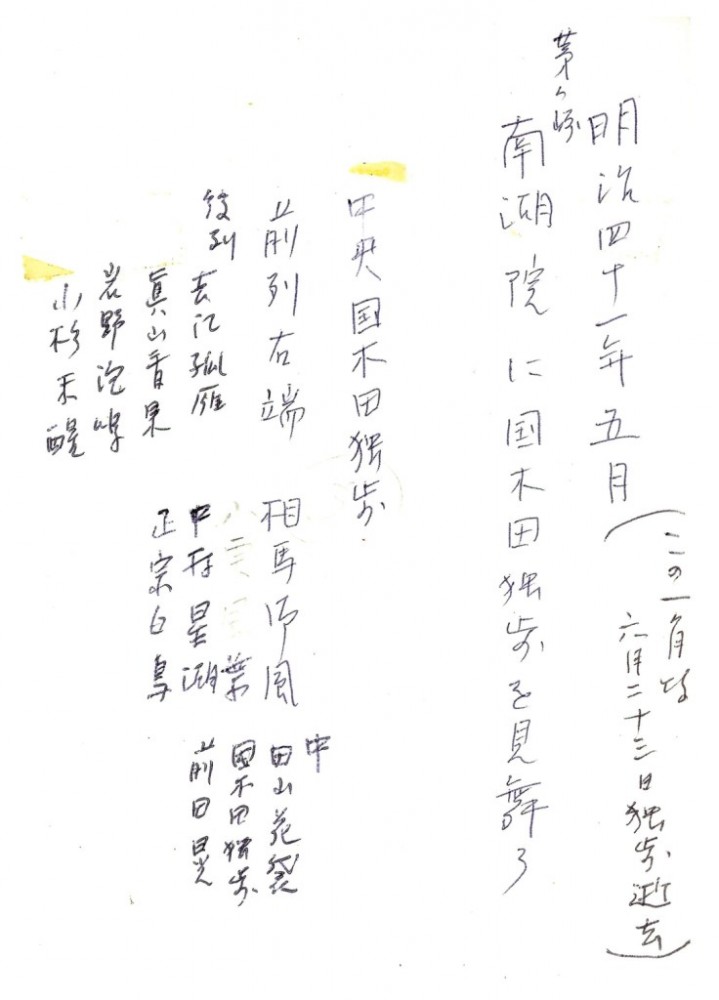 明治四十一年五月
(この一月后
六月二十三日独歩逝去)
茅ヶ崎
南湖院に国木田独歩を見舞ふ
中央国木田独歩
前列右端 相馬御風
葉
後列 吉江孤雁 中村星湖
眞山青果 正宗白鳥
岩野泡鳴
小杉未醒
中
田山花袋
國木田独歩
前田晁